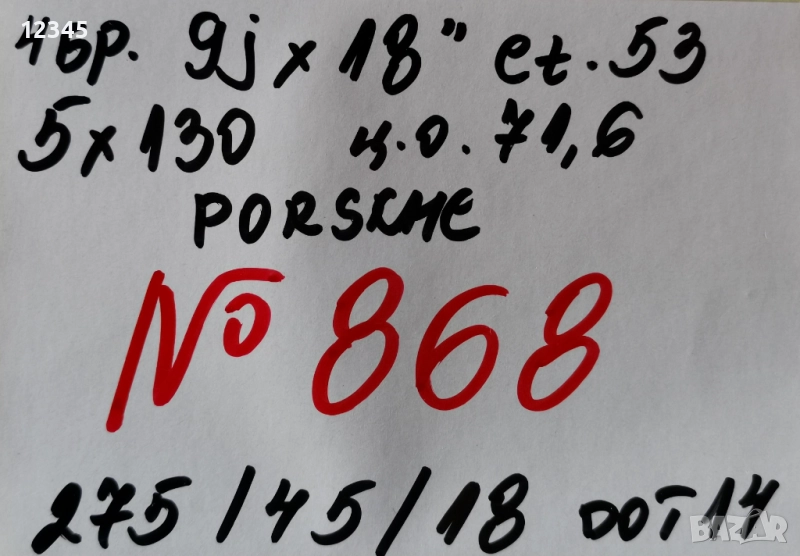 12345
4бр. 9j x 18" et. 53
5 x 130 ц.о. 71,6
PORSCHE
№ 868
275 / 45 / 18 DOT 14
BAZAR